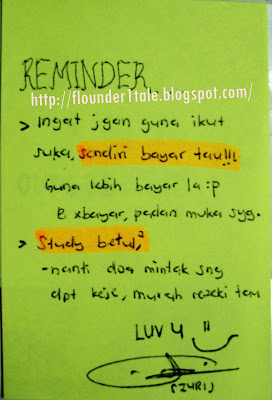 REMINDER
http://flounder1tale.blogspot.com/
> Ingat jgan guna ikut
suka, sendiri bayar tau!!!
Guna lebih bayar la :p
E xbayar, padan muka syg.
> Study betul²
- nanti doa mintak sng
dpt keje, murah rezeki tau
LUV U